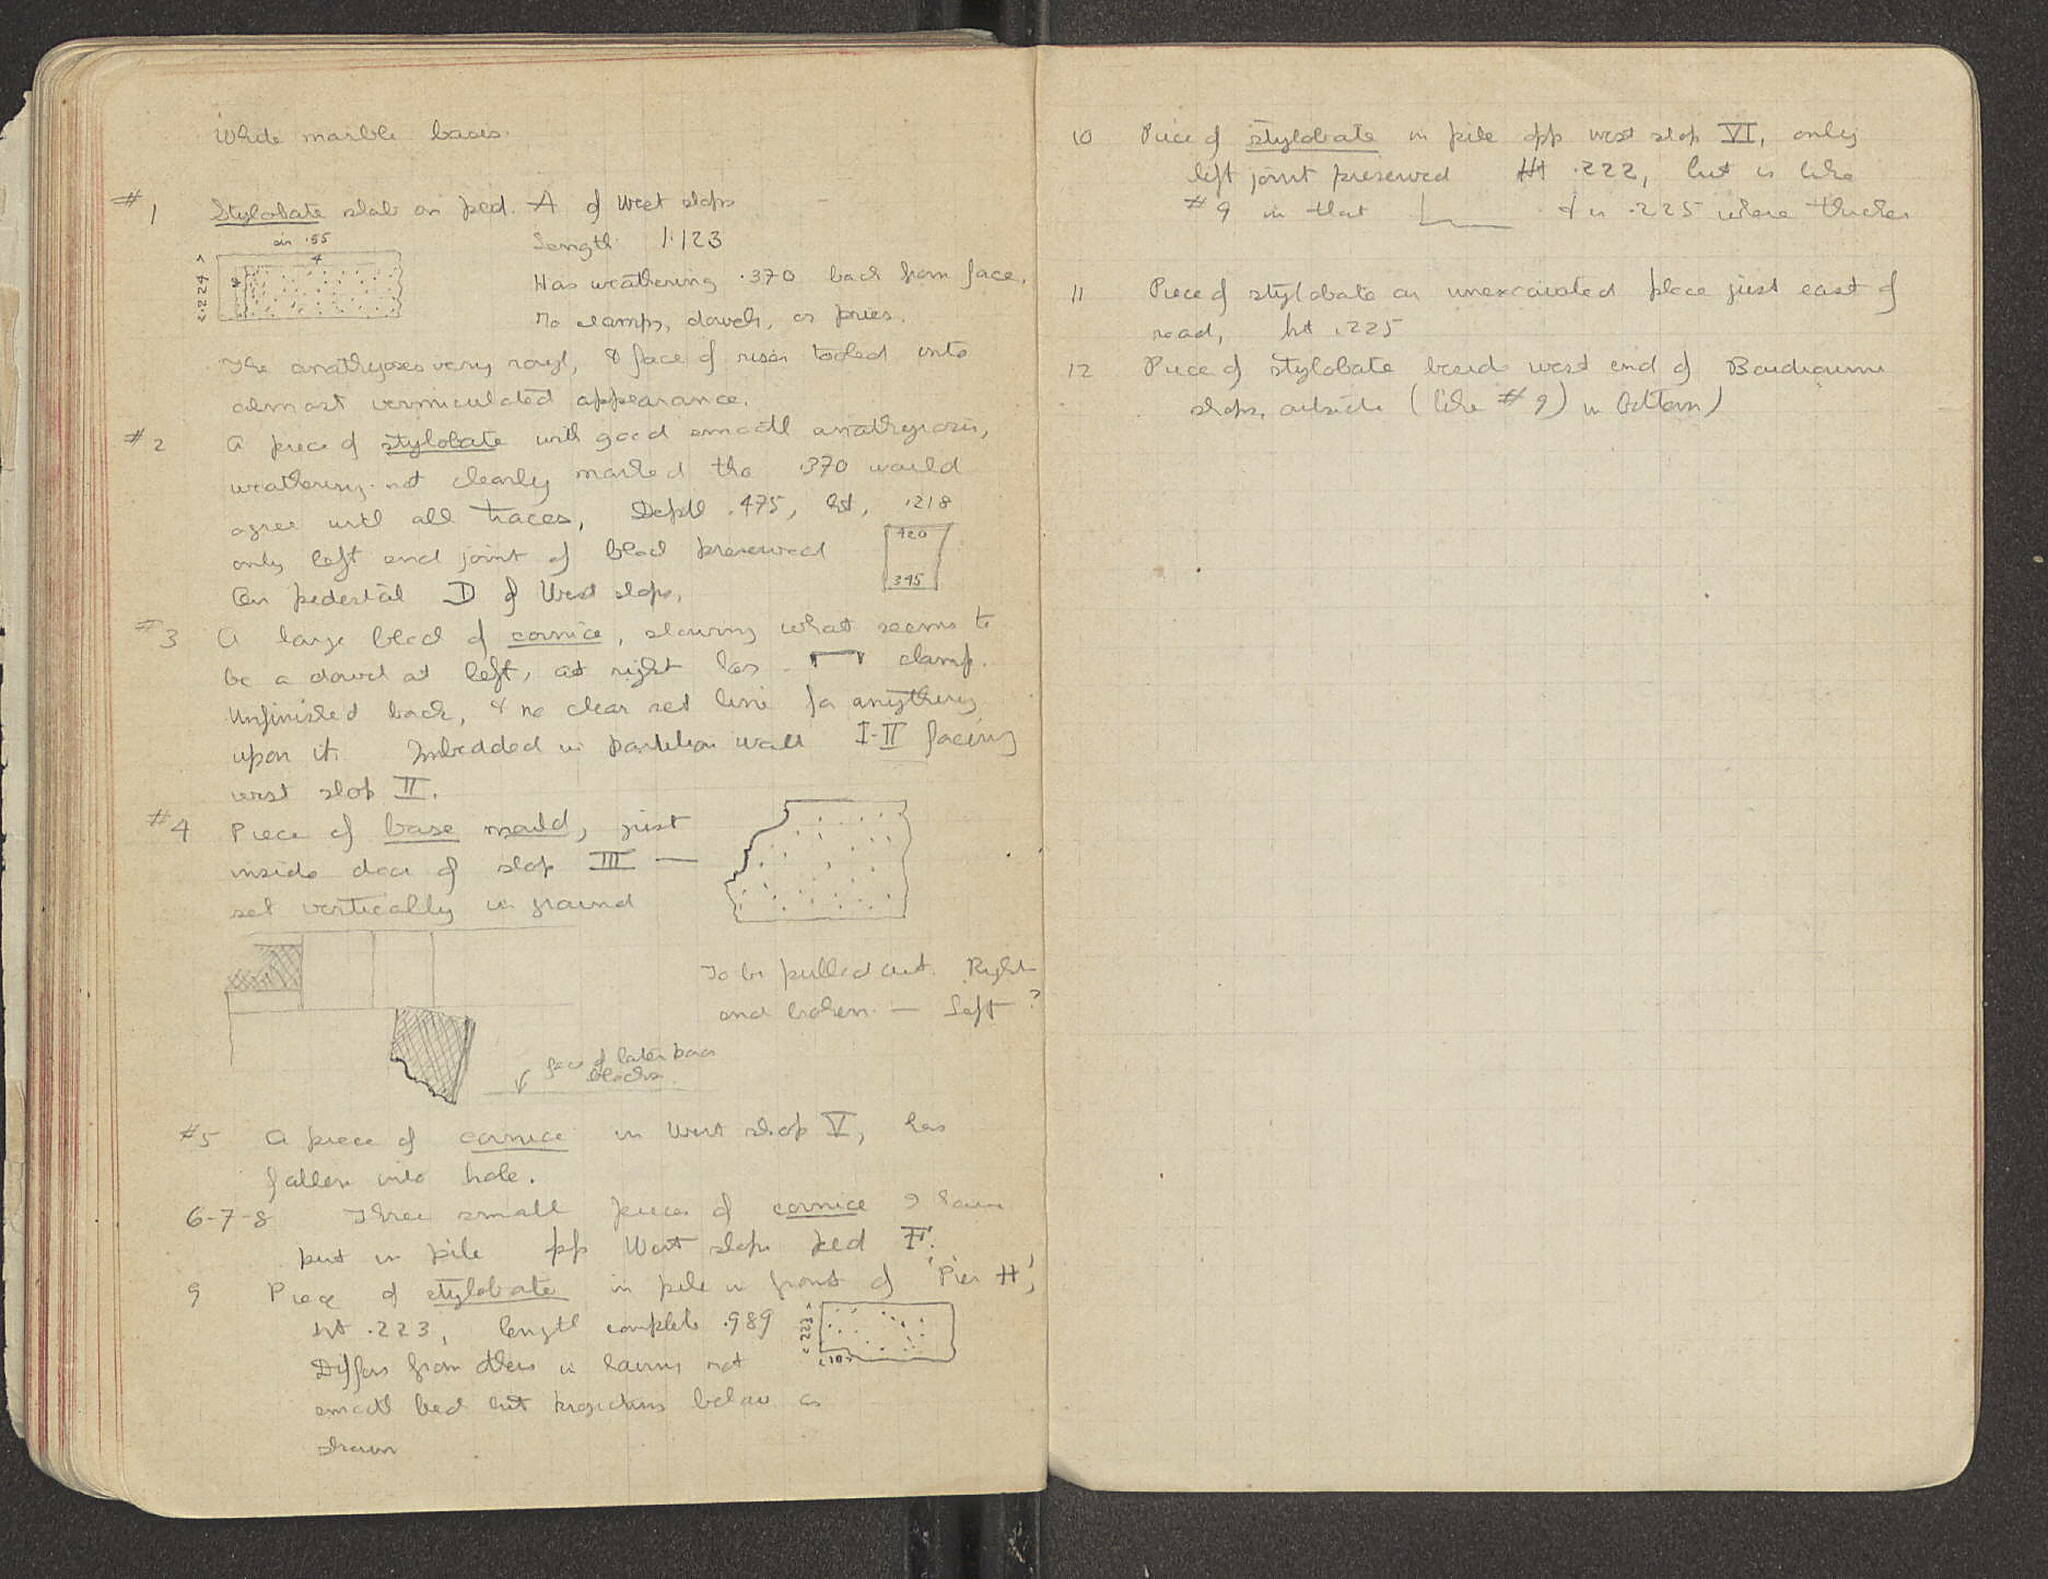 White marble bases.
#1 Stylobate slab on ped. A of West shops
cir .55
Length 1.123
<.224>
Has weathering .370 back from face.
No clamps, dowels, or pries.
The anathyroses very rough, & face of riser tooled into
almost vermiculated appearance.
#2 A piece of stylobate with good smooth anathyrosis,
weathering not clearly marked tho .370 would
agree with all traces, Depth .475, ht. .218
only left end joint of block preserved
420
345
On pedestal D of West shops.
#3 A large block of cornice, showing what seems to
be a dowel at left, at right has clamp.
Unfinished back, & no clear set line for anything
upon it. Imbedded in partition wall I-II facing
west shop II.
#4 Piece of base mould, just
inside door of shop III —
set vertically in ground
To be pulled out. Right
end broken. — Left ?
face of later base
blocks
#5 A piece of cornice in West shop V, has
fallen into hole.
6-7-8 Three small pieces of cornice I have
put in pile opp West shops ped F.
9 Piece of stylobate in pile in front of 'Pier H',
ht .223, length complete .989
<.223>
<.10>
Differs from others in having not
smooth bed but projections below as
shown
10 Piece of stylobate in pile opp west shop VI, only
left joint preserved Ht .222, but is like
#9 in that & is .225 where thicker
11 Piece of stylobate on unexcavated place just east of
road, ht .225
12 Piece of stylobate beside west end of Boudroumi
shops, outside (like #9) in bottom)